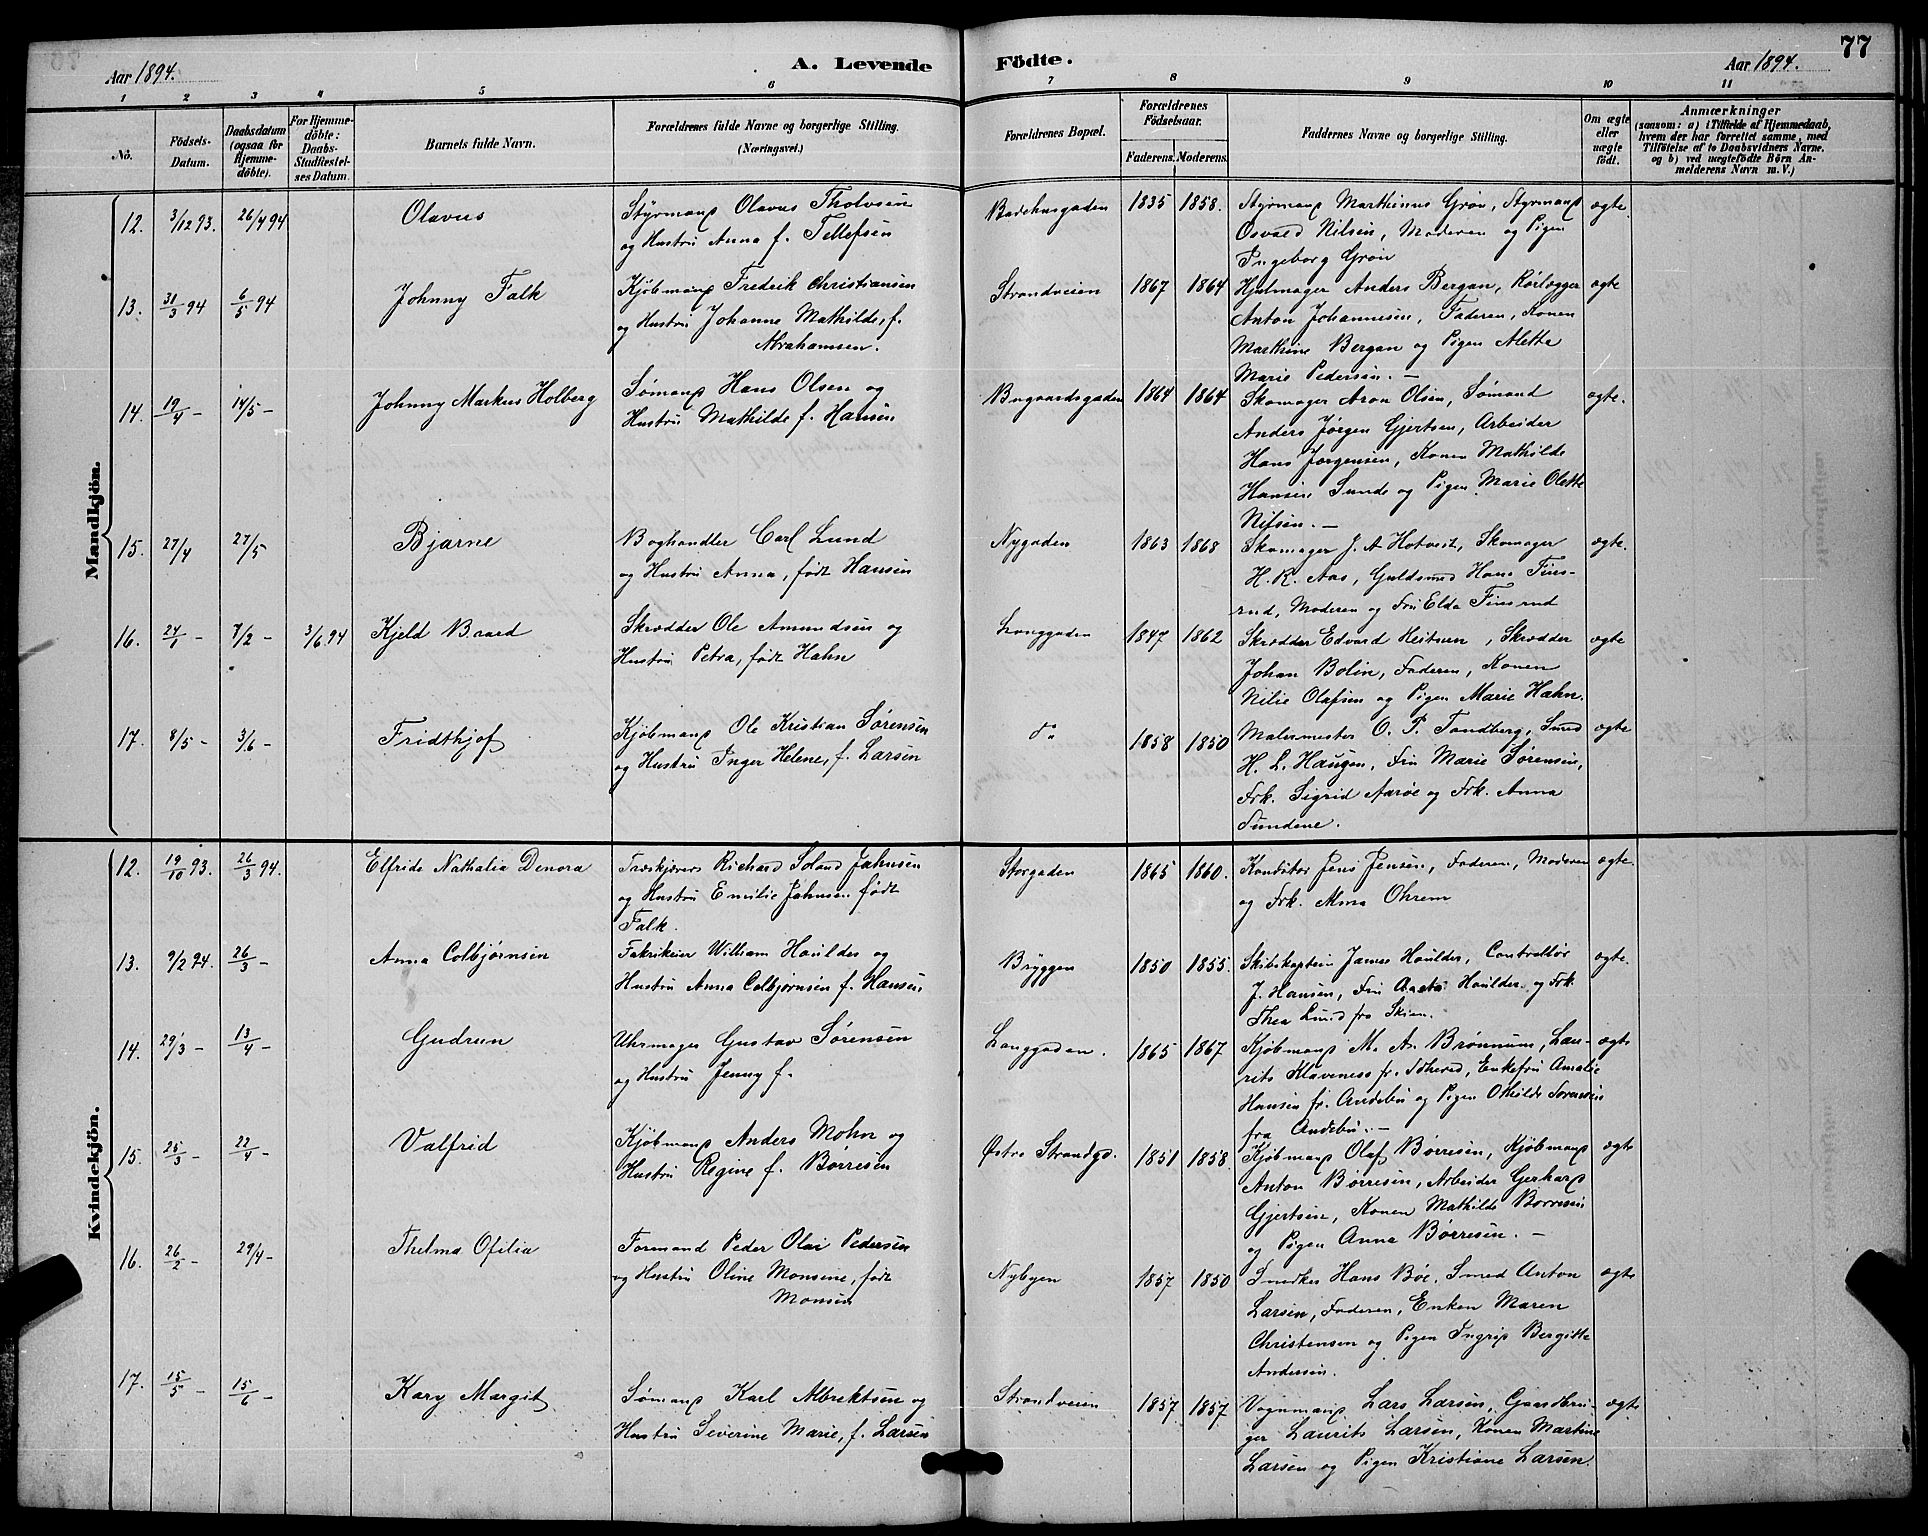 77
Aar 1894.
A. Levende Födte.
Aar 1894.
1 2 3 4 5 6 7 8 9 10 11
No.
Födsels-Datum.
Daabsdatum (ogsaa for Hjemmedöbte).
For Hjemmedöbte: Daabs-Stadfæstelses Datum.
Barnets fulde Navn.
Forældrenes fulde Navne og borgerlige Stilling.
(Næringsvei.)
Forældrenes Bopæl.
Forældrenes Födselsaar.
Faderens. Moderens.
Faddernes Navne og borgerlige Stilling.
Om ægte eller uægte födt.
Anmærkninger
(saasom: a) i Tilfælde af Hjemmedaab, hvem der har forrettet samme, med Tilföielse af to Daabsvidners Navne. og b) ved uægtefödte Börn Anmelderens Navn m. V.)
Mandkjön.
12. 3/12 93. 26/4 94 Olavus
Styrmand Olavus Tholvsen
og Hustru Anna f. Tellefsen
Badehusgaden 1835 1858.
Styrmand Marthinus Grøn, Styrmand
Osvald Nilsen, Moderen og Pigen
Ingeborg Grøn
ægte.
13. 31/3 94 6/5 94 Johnny Falk
Kjøbmand Fredrik Christiansen
og Hustru Johanne Mathilde, f.
Abrahamsen.
Strandveien 1867 1864
Hjulmager Anders Bergan, Rørlægger
Anton Johannesen, Faderen, Konen
Marthine Bergan og Pigen Alette
Marie Pedersen. —
ægte
14. 19/4 — 14/5 — Johnny Markus Holberg
Sømand Hans Olsen og
Hustru Mathilde f. Hansen
Bugaardsgaden 1864 1864
Skomager Aron Olsen, Sømand
Anders Jørgen Gjertsen, Arbeider
Hans Jørgensen, Konen Mathilde
Hansine Sunde og Pigen Marie Olette
Nilsen. —
ægte.
15. 27/4 27/5 Bjarne
Boghandler Carl Lund
og Hustru Anna, født Hansen
Nygaden 1863 1868
Skomager J. A Hotvest, Skomager
H. R. Aas, Guldsmed Hans Finsrud, Moderen og Fru Elda Finsrud
ægte.
16. 24/1 — 7/2 — 3/6 94 Kjeld Baard
Skrædder Ole Amundsen og
Hustru Petra, født Hahn
Langgaden 1847 1862
Skrædder Edvard Heitmen, Skrædder
Johan Bolin, Faderen, Konen
Nilie Olafsen og Pigen Marie Hahn.
ægte
17. 8/5 — 3/6 — Fridthjof
Kjøbmand Ole Kristian Sørensen
og Hustru Inger Helene, f. Larsen
do 1858 1850
Malermester O. P. Tandberg, Smed
H. L. Haugen, Fru Marie Sørensen,
Frk. Sigrid Aarøe og Frk. Anna
Sundene.
ægte
Kvindekjön.
12. 19/10 93. 26/3 94. Elfride Nathalia Denora
Træskjærer Richard Soland Jahnsen
og Hustru Emilie Jahnsen født
Falk.
Storgaden 1865 1860.
Konditor Jens Jensen, Faderen, Moderen
og Frk. Alma Ohrem
ægte
13. 9/2 94. 26/3 — Anna Colbjørnsen
Fabrikeier William Houlder og
Hustru Anna Colbjørnsen f. Hansen,
Bryggen 1850 1855.
Skibskaptein James Houlder, Controllør
J. Hansen, Fru Houlder og Frk.
Thea Lund fra Skien.
ægte.
14. 29/3 — 13/4 — Gudrun
Uhrmager Gustav Sørensen
og Hustru Jenny f.
Langgaden. 1865 1867
Kjøbmand M. A. Brønnum, Laurits Klaveness fr. Sdherred, Enkefru Amalie
Hansen fr. Andebu og Pigen Othilde Sørensen
fra Andebu. —
ægte
15. 25/3 — 22/4 — Valfrid
Kjøbmand Anders Mohn og
Hustru Regine f. Børresen
Østre Strandgd. 1851 1858.
Kjøbmand Olaf Børresen, Kjøbmand
Anton Børresen, Arbeider Gerhard
Gjertsen, Konen Mathilde Børresen
og Pigen Anna Børresen. —
ægte
16. 26/2 — 29/4 — Thelma Ofilia
Formand Peder Olai Pedersen
og Hustru Oline Monsine, født
Monsen
Nybyen 1857 1850
Snedker Hans Bøe, Smed Anton
Larsen, Faderen, Enken Maren
Christensen og Pigen Ingrid Bergitte
Andersen.
ægte
17. 15/5 — 15/6 — Kary Margit
Sømand Karl Albrektsen og
Hustru Severine Marie, f. Larsen
Strandveien 1857 1857
Vognmand Lars Larsen, Gaardbruger Laurits Larsen, Konen Martine
Larsen og Pigen Kristiane Larsen.
ægte